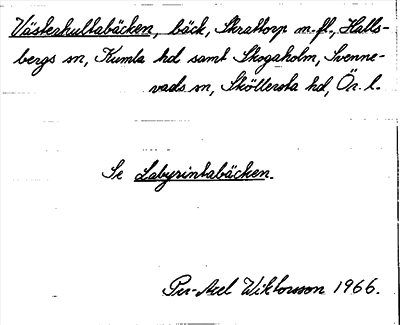 Västerhultabäcken, bäck, Skrattorp m.fl., Halls-
bergs sn, Kumla hd samt Skogaholm, Svenne-
vads sn, Sköllersta hd, Ör. l.
Se Labyrintabäcken.
Per-Axel Wiktorsson 1966.